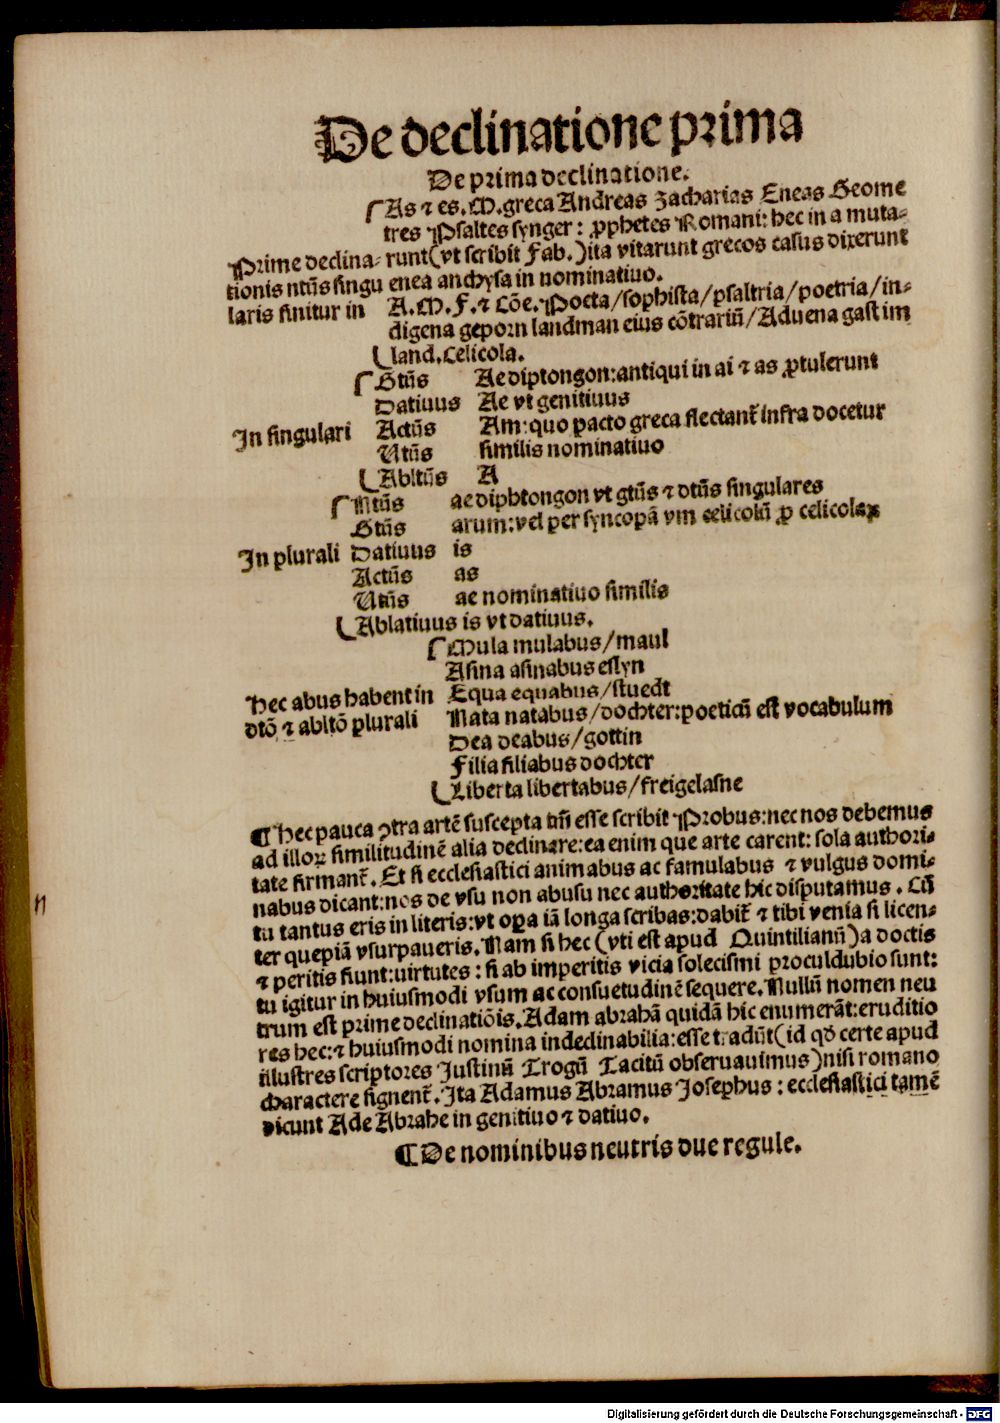 De declinatione prima
De prima declinatione.
As ⁊ es. M. greca Andreas Zacharias Eneas Geome
tres Psaltes synger: ꝓphetes Romani: hec in a muta-
Prime declina- runt (vt scribit Fab.) ita vitarunt grecos casus dixerunt
tionis ntūs singu enea anchysa in nominatiuo.
laris finitur in A. M. F. ⁊ Cōe. Poeta/sophista/psaltria/poetria/in-
digena geporn landman eius cōtrariū/Aduena gast im
land. Celicola.
Gtūs Ae diptongon: antiqui in ai ⁊ as ꝓtulerunt
Datiuus Ae vt genitiuus
In singulari Actūs Am: quo pacto greca flectant᷑ infra docetur
Vtūs similis nominatiuo
Abltūs A
Ntūs ae diphtongon vt gtūs ⁊ dtūs singulares
Gtūs arum: vel per syncopā vm celicolū ꝓ celicolaꝝ
In plurali Datiuus is
Actūs as
Vtūs ae nominatiuo similis
Ablatiuus is vt datiuus.
Mula mulabus/maul
Asina asinabus eslyn
Hec abus habent in Equa equabus/stuedt
dtō ⁊ abltō plurali Nata natabus/dochter: poeticū est vocabulum
Dea deabus/gottin
Filia filiabus dochter
Liberta libertabus/freigelasne
¶ Hec pauca ꝯtra artē suscepta tm̄ esse scribit Probus: nec nos debemus
ad illoꝝ similitudinē alia declinare: ea enim que arte carent: sola authori-
tate firmant᷑. Et si ecclesiastici animabus ac famulabus ⁊ vulgus domi-
nabus dicant: nos de vsu non abusu nec authoritate hic disputamus. Cū
tu tantus eris in literis: vt oꝑa iā longa scribas: dabit᷑ ⁊ tibi venia si licen-
ter quepiā vsurpaueris. Nam si hec (vti est apud Quintilianū) a doctis
⁊ peritis fiunt: virtutes: si ab imperitis vicia solecismi proculdubio sunt:
tu igitur in huiusmodi vsum ac consuetudinē sequere. Nullū nomen neu
trum est prime declinatiōis. Adam abrahā quidā hic enumerāt: eruditio
res hec: ⁊ huiusmodi nomina indeclinabilia: esse tradūt (id qd̄ certe apud
illustres scriptores Justinū Trogū Tacitū obseruauimus) nisi romano
charactere signent᷑. Ita Adamus Abramus Josephus: ecclesiastici tamē
dicunt Ade Abrahe in genitiuo ⁊ datiuo.
¶ De nominibus neutris due regule.
Digitalisierung gefördert durch die Deutsche Forschungsgemeinschaft - DFG